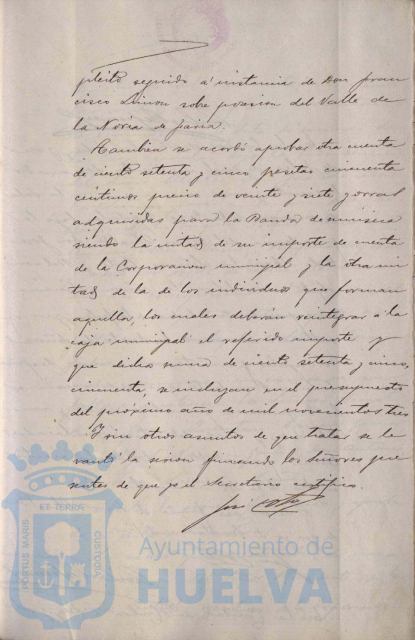 pleito seguido á instancia de Don Fran
cisco Limon sobre posesion del Valle de
la Noria de Jaria.
Tambien se acordó aprobar otra cuenta
de ciento setenta y cinco pesetas cincuenta
centimos precio de veinte y siete gorras
adquiridas para la Banda de música
siendo la mitad de su importe de cuenta
de la Corporacion municipal y la otra mi
tad de la de los individuos que forman
aquella, los cuales deberán reintegrar á la
caja municipal el referido importe y
que dicha suma de ciento setenta y cinco,
cincuenta, se incluyan en el presupuesto
del próximo año de mil novecientos tres
Y sin otros asuntos de que tratar se le
vantó la sesion firmando los Señores pre
sentes de que yo el Secretario certifico.
José
PORTUS MARIS
ET TERRÆ
CUSTODIA
Ayuntamiento de
HUELVA